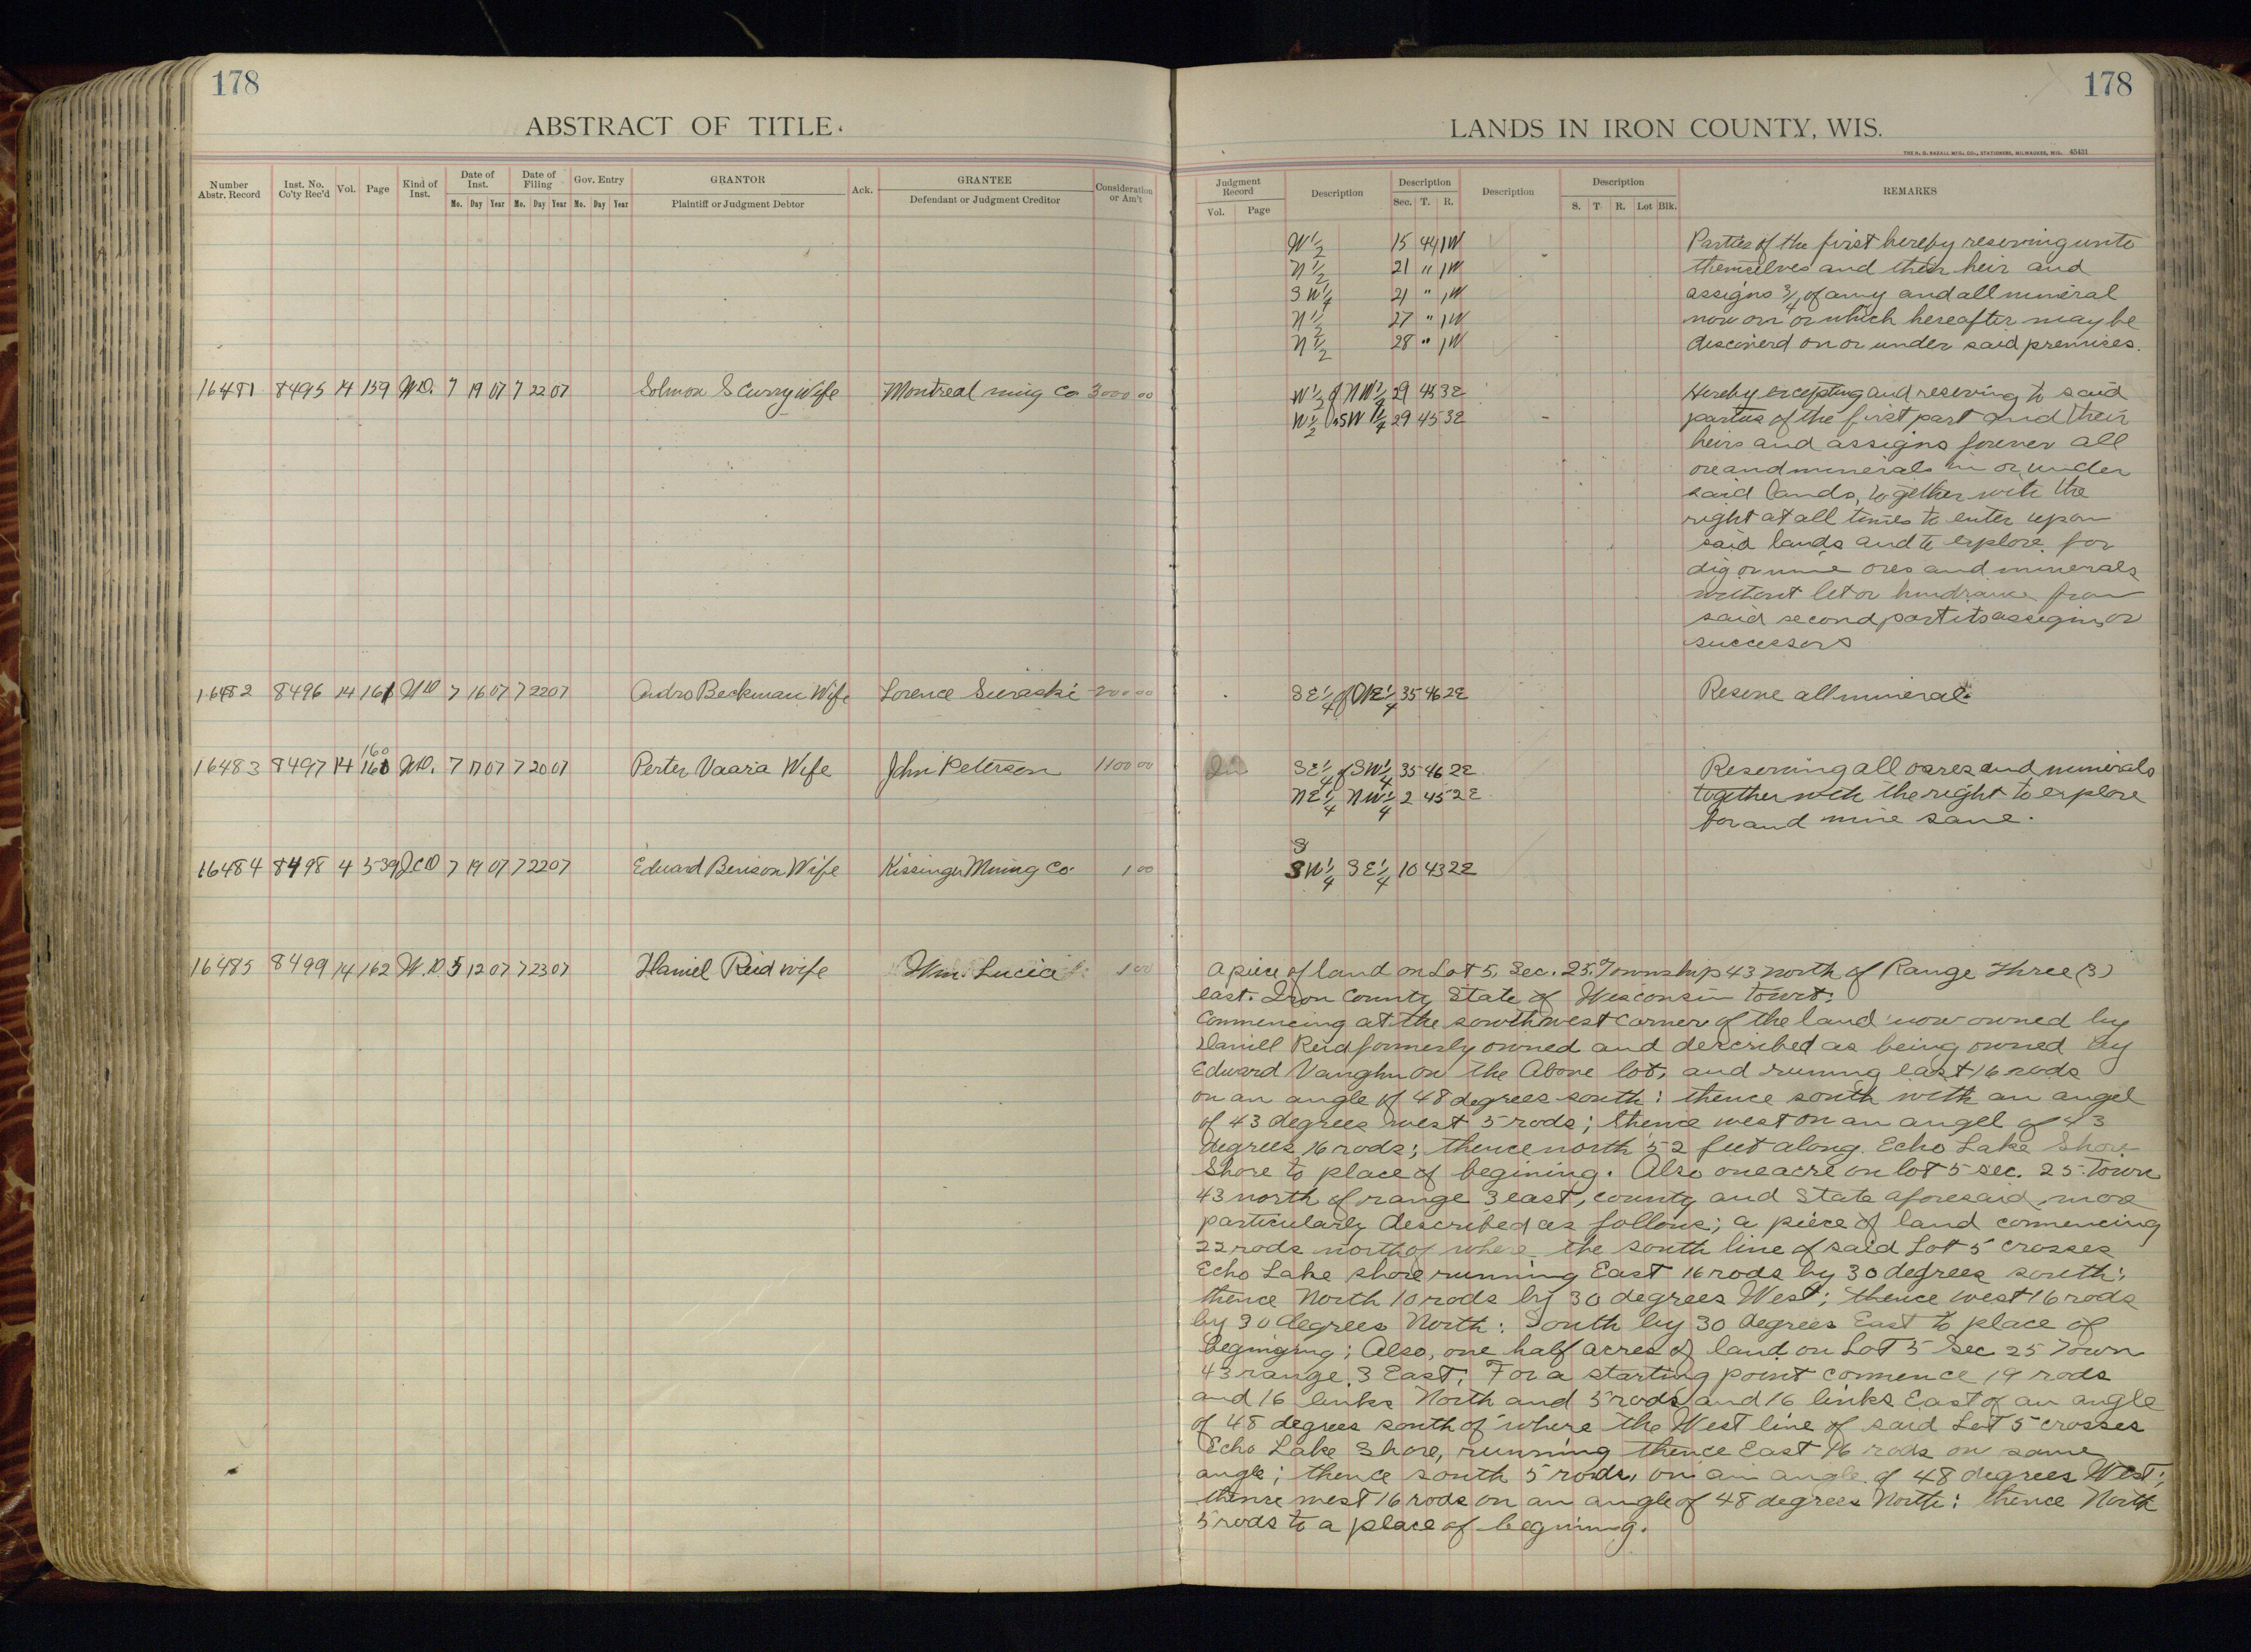 178
ABSTRACT OF TITLE.
Number Abstr. Record | Inst. No. Co'ty Rec'd | Vol. | Page | Kind of Inst. | Date of Inst. Mo. Day Year | Date of Filing Mo. Day Year | Gov. Entry Mo. Day Year | GRANTOR Plaintiff or Judgment Debtor | Ack. | GRANTEE Defendant or Judgment Creditor | Consideration or Am't
16481 8495 14 159 W.D. 7 19 07 7 22 07 Solmon S Curry Wife Montreal ming Co. 3000 00
16482 8496 14 161 WD 7 16 07 7 22 07 Andro Beckman Wife Lorence Suraski 200 00
160
16483 8497 14 160 WD. 7 17 07 7 20 07 Perter Vaara Wife John Peterson 1100 00
16484 8498 4 539 QCD 7 19 07 7 22 07 Edward Benson Wife Kissinger Mining Co. 1 00
16485 8499 14 162 W.D 5 12 07 7 23 07 Haniel Reid wife Wm. Lucia 1 00
178
LANDS IN IRON COUNTY, WIS.
45431
Judgment Record Vol. Page | Description | Description Sec. T. R. | Description | Description S. T. R. Lot Blk. | REMARKS
W 1/2 15 44 1W Parties of the first hereby reserving unto
N 1/2 21 " 1W themselves and their heir and
SW 1/4 21 " 1W assigns 3/4 of anny and all mineral
N 1/2 27 " 1W now on or which hereafter may be
N 1/2 28 " 1W discoverd on or under said premises.
W 1/2 of NW 1/4 29 45 3E Hereby excepting and reserving to said
W 1/2 of SW 1/4 29 45 3E parties of the first part and their
heirs and assigns forever all
ore and minerals in or under
said lands, together with the
right at all times to enter upon
said lands and to explore for
dig or mine ores and minerals
without let or hindrance from
said second part its assigns or
successors
SE 1/4 of NE 1/4 35 46 2E Reserve all mineral.
SE 1/4 of SW 1/4 35 46 2E Reserving all oares and minerals
NE 1/4 NW 1/4 2 45 2E together with the right to explore
for and mine same.
S
SW 1/4 SE 1/4 10 43 2E
A piece of land on Lot 5, Sec. 25. Township 43 north of Range three (3)
east. Iron County State of Wisconsin towit:
Commencing at the southwest corner of the land now owned by
Daniell Reid formerly owned and described as being owned by
Edward Vaughn on the Above lot, and runing east 16 rods
on an angle of 48 degrees south: thence south with an angel
of 43 degrees west 5 rods; thence west on an angel of 43
degrees 16 rods; thence north 52 feet along Echo Lake Shore
Shore to place of begining. Also one acre on lot 5 sec. 25 Town
43 north of range 3 east, county and State aforesaid, more
particularly described as follows; a piece of land comencing
22 rods north of where the south line of said Lot 5 crosses
Echo Lake shore running East 16 rods by 30 degrees south;
thence North 10 rods by 30 degrees West; thence west 16 rods
by 30 degrees North: South by 30 degrees East to place of
Beginging; Also, one half acres of land on Lot 5 Sec 25 Town
43 range 3 East. For a starting point comence 19 rods
and 16 links North and 5 rods and 16 links East of an angle
of 48 degrees south of where the West line of said Lot 5 crosses
Echo Lake Shore, running thence East 16 rods on same
angle; thence south 5 rods, on an angle of 48 degrees West;
thense west 16 rods on an angle of 48 degrees North: thence North
5 rods to a place of begining.